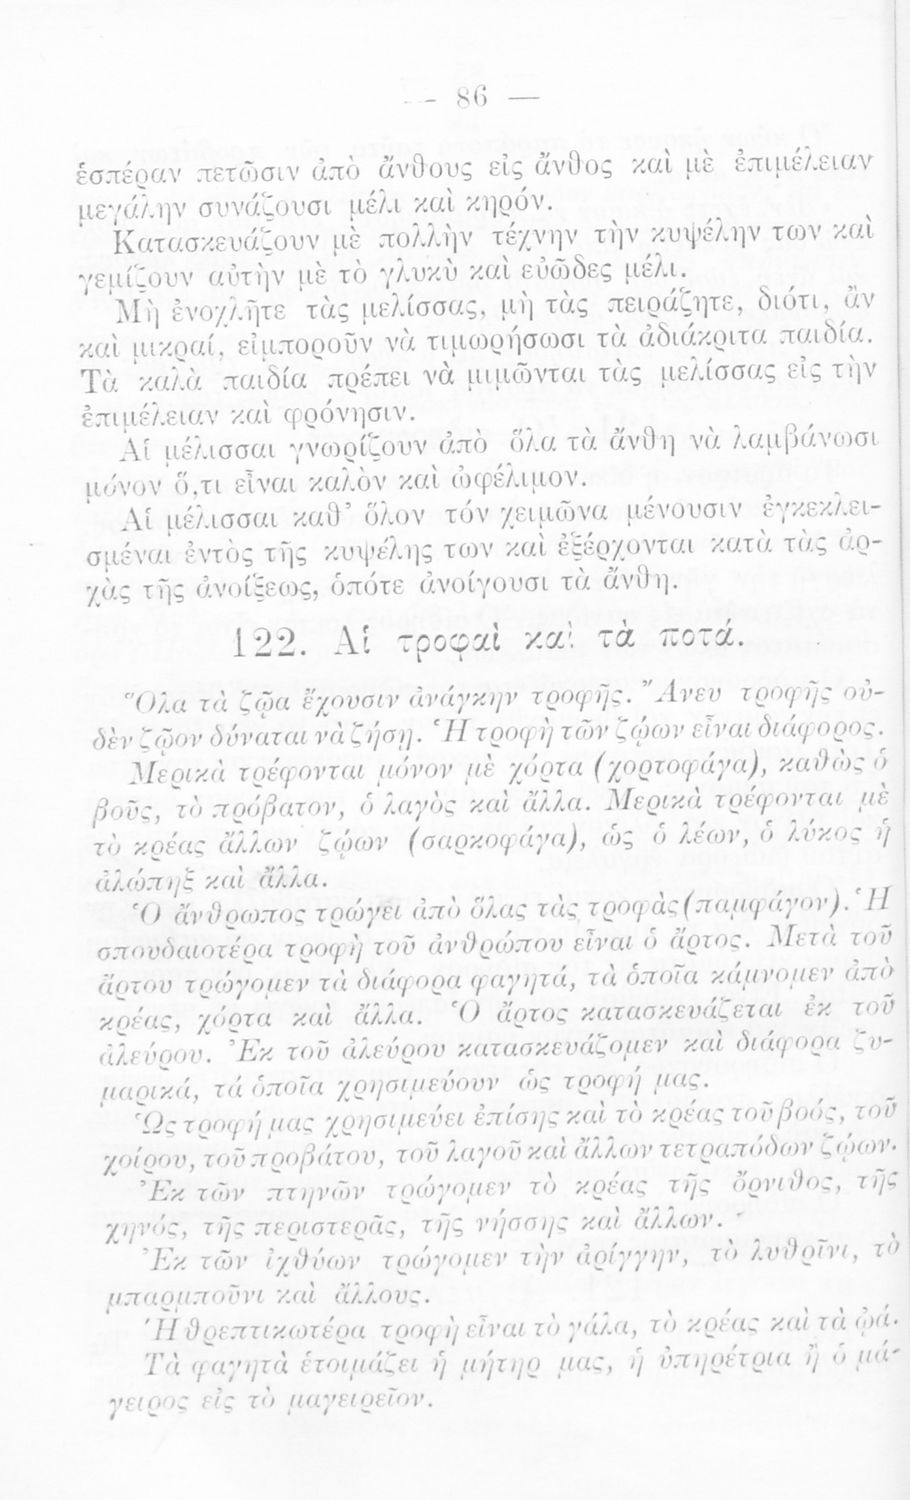 — 86 —
ἑσπέραν πετῶσιν ἀπὸ ἄνθους εἰς ἄνθος καὶ μὲ ἐπιμέλειαν
μεγάλην συνάζουσι μέλι καὶ κηρόν.
Κατασκευάζουν μὲ πολλὴν τέχνην τὴν κυψέλην των καὶ
γεμίζουν αὐτὴν μὲ τὸ γλυκὺ καὶ εὐῶδες μέλι.
Μὴ ἐνοχλῆτε τὰς μελίσσας, μὴ τὰς πειράζητε, διότι, ἂν
καὶ μικραί, εἰμποροῦν νὰ τιμωρήσωσι τὰ ἀδιάκριτα παιδία.
Τὰ καλὰ παιδία πρέπει νὰ μιμῶνται τὰς μελίσσας εἰς τὴν
ἐπιμέλειαν καὶ φρόνησιν.
Αἱ μέλισσαι γνωρίζουν ἀπὸ ὅλα τὰ ἄνθη νὰ λαμβάνωσι
μόνον ὅ,τι εἶναι καλὸν καὶ ὠφέλιμον.
Αἱ μέλισσαι καθ’ ὅλον τόν χειμῶνα μένουσιν ἐγκεκλει-
σμέναι ἐντὸς τῆς κυψέλης των καὶ ἐξέρχονται κατὰ τὰς ἀρ-
χὰς τῆς ἀνοίξεως, ὁπότε ἀνοίγουσι τὰ ἄνθη.
122. Αἱ τροφαὶ καὶ τὰ ποτά.
Ὅλα τὰ ζῷα ἔχουσιν ἀνάγκην τροφῆς. Ἄνευ τροφῆς οὐ-
δὲν ζῷον δύναται νὰ ζήσῃ. Ἡ τροφὴ τῶν ζῴων εἶναι διάφορος.
Μερικὰ τρέφονται μόνον μὲ χόρτα (χορτοφάγα), καθὼς ὁ
βοῦς, τὸ πρόβατον, ὁ λαγὸς καὶ ἄλλα. Μερικὰ τρέφονται μὲ
τὸ κρέας ἄλλων ζῴων (σαρκοφάγα), ὡς ὁ λέων, ὁ λύκος ἡ
ἀλώπηξ καὶ ἄλλα.
Ὁ ἄνθρωπος τρώγει ἀπὸ ὅλας τὰς τροφὰς (παμφάγον). Ἡ
σπουδαιοτέρα τροφὴ τοῦ ἀνθρώπου εἶναι ὁ ἄρτος. Μετὰ τοῦ
ἄρτου τρώγομεν τὰ διάφορα φαγητά, τὰ ὁποῖα κάμνομεν ἀπὸ
κρέας, χόρτα καὶ ἄλλα. Ὁ ἄρτος κατασκευάζεται ἐκ τοῦ
ἀλεύρου. Ἐκ τοῦ ἀλεύρου κατασκευάζομεν καὶ διάφορα ζυ-
μαρικά, τά ὁποῖα χρησιμεύουν ὡς τροφή μας.
Ὡς τροφή μας χρησιμεύει ἐπίσης καὶ τὸ κρέας τοῦ βοός, τοῦ
χοίρου, τοῦ προβάτου, τοῦ λαγοῦ καὶ ἄλλων τετραπόδων ζῴων.
Ἐκ τῶν πτηνῶν τρώγομεν τὸ κρέας τῆς ὄρνιθος, τῆς
χηνός, τῆς περιστερᾶς, τῆς νήσσης καὶ ἄλλων.
Ἐκ τῶν ἰχθύων τρώγομεν τὴν ἀρίγγην, τὸ λυθρῖνι, τὸ
μπαρμποῦνι καὶ ἄλλους.
Ἡ θρεπτικωτέρα τροφὴ εἶναι τὸ γάλα, τὸ κρέας καὶ τὰ ᾠά.
Τὰ φαγητὰ ἑτοιμάζει ἡ μήτηρ μας, ἡ ὑπηρέτρια ἢ ὁ μά-
γειρος εἰς τὸ μαγειρεῖον.